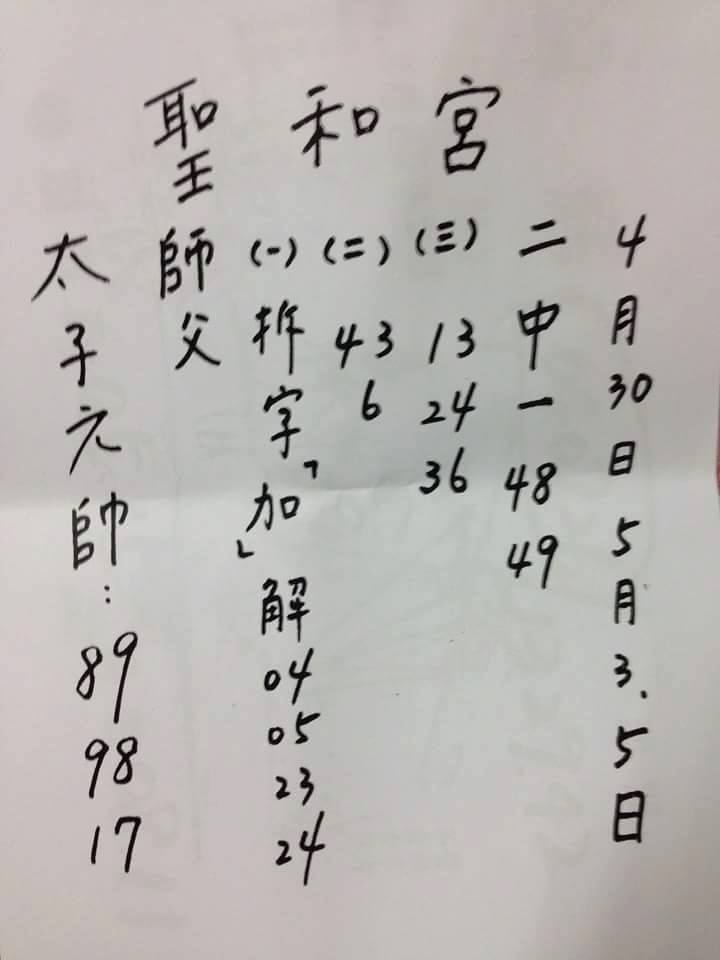 聖和宮
太子元帥：89 98 17
師父
(一)拆字「加」解 04 05 23 24
(二) 43 6
(三) 13 24 36
二中一 48 49
4月30日5月3.5日